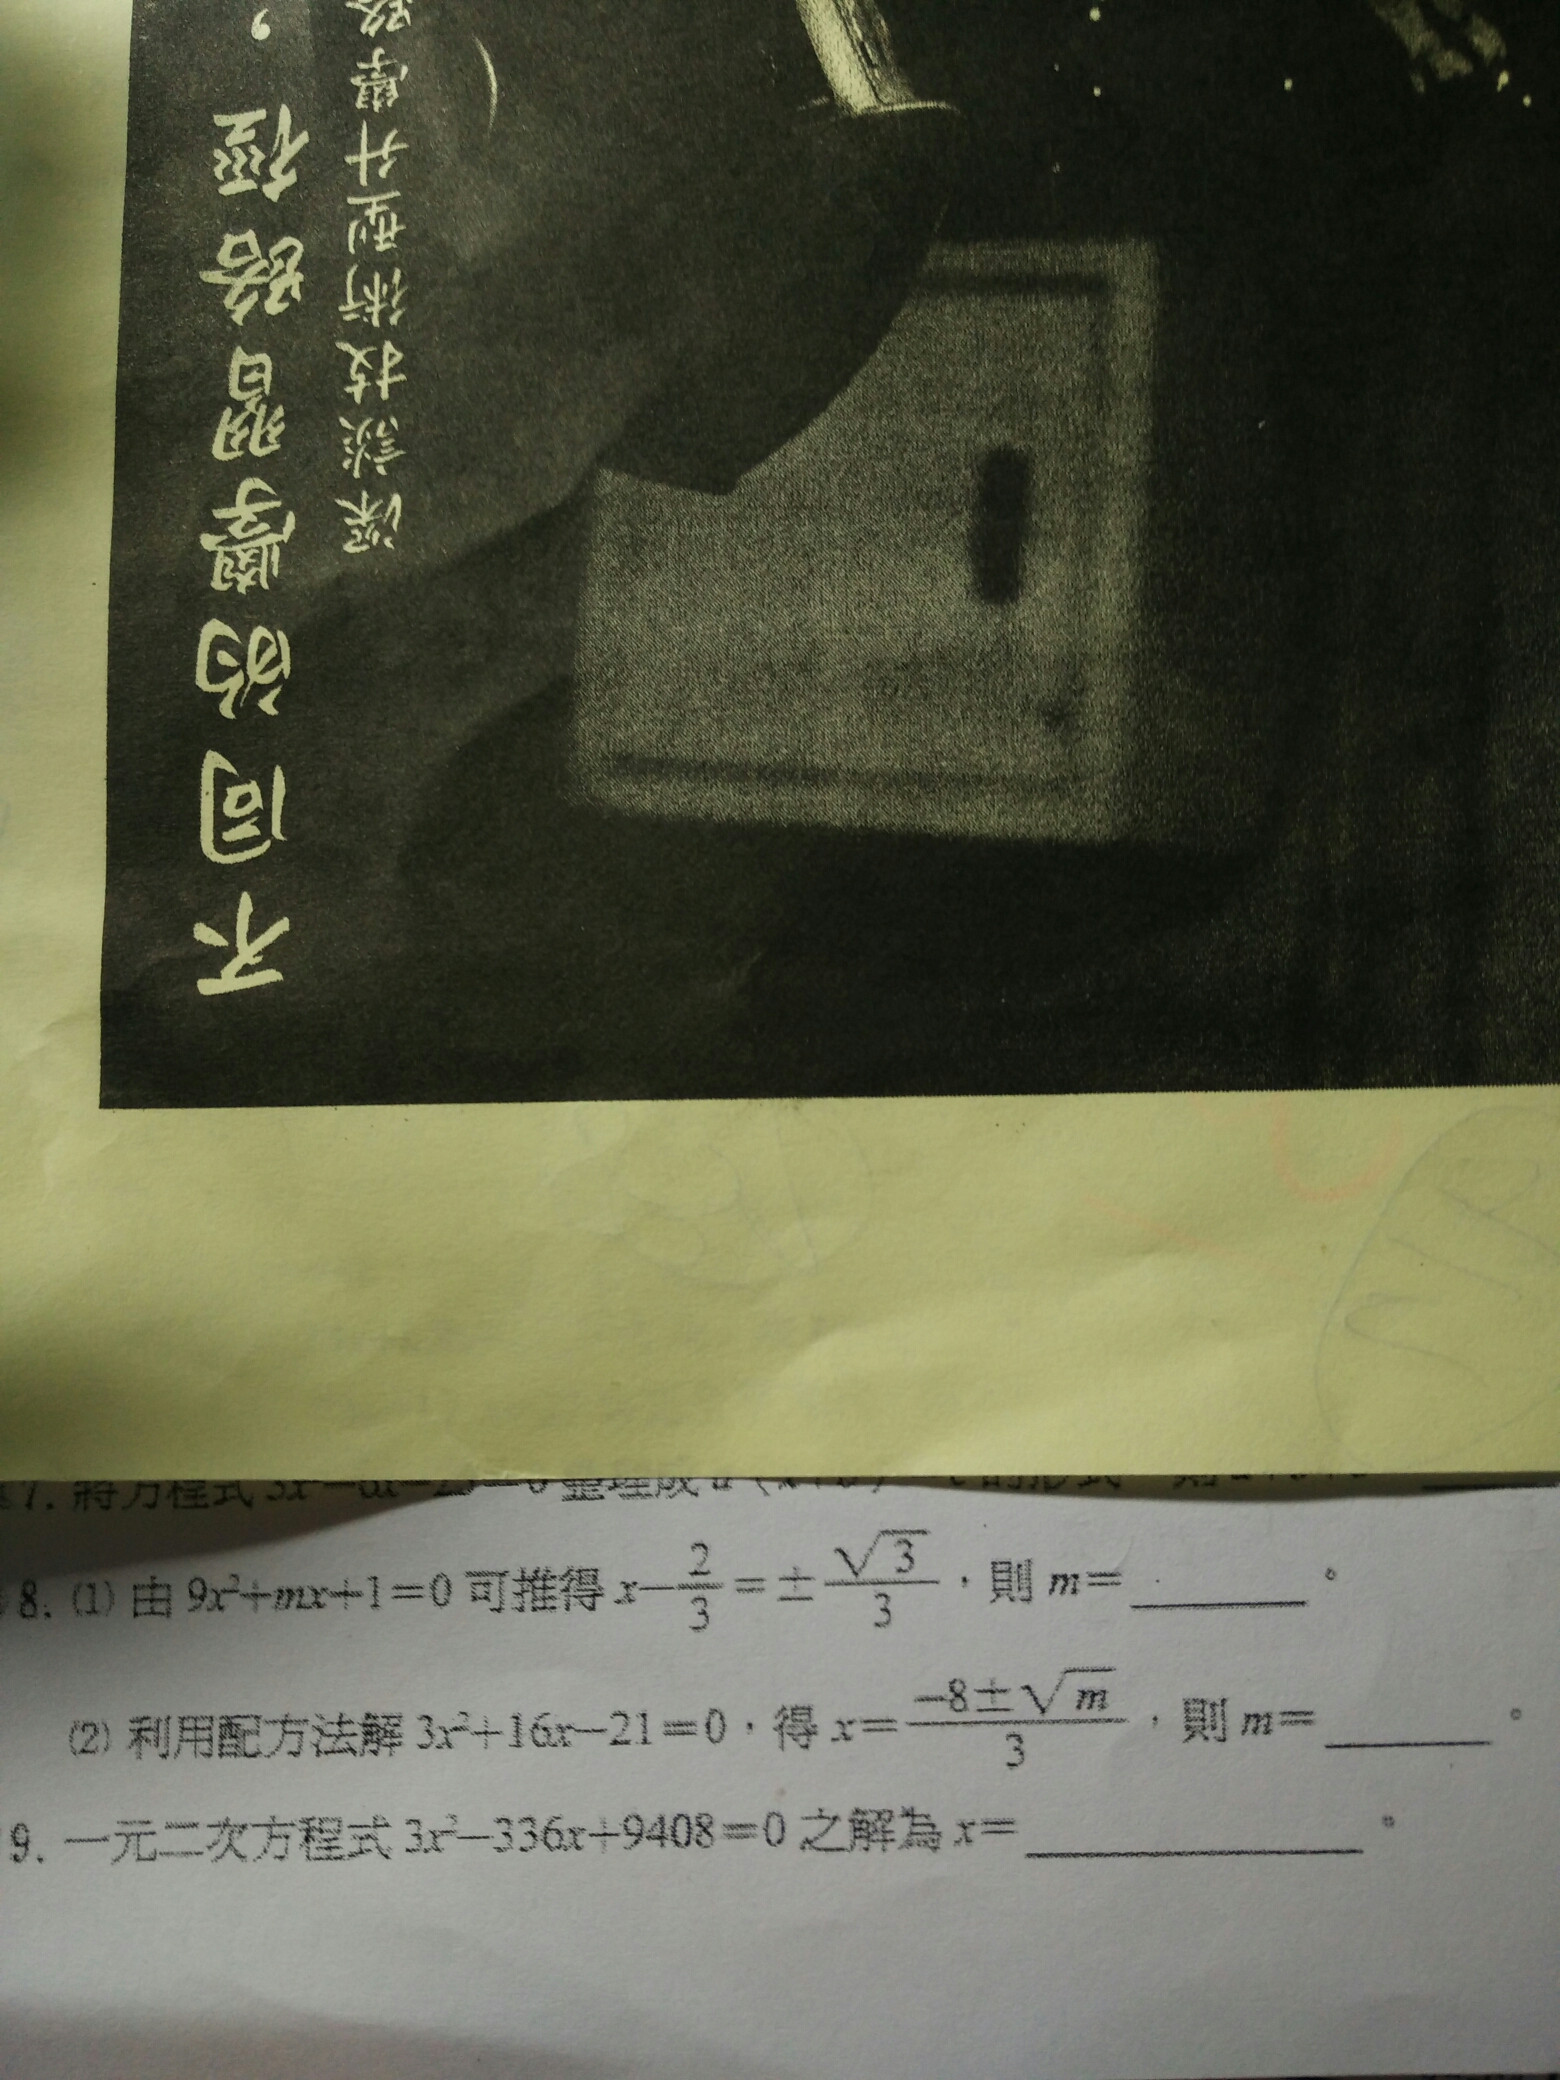 不同的學習路徑，
深談技術型升學路
7. 將方程式 3x²
8. (1) 由 9x²+mx+1=0 可推得 x−2/3=±√3/3，則 m=______。
(2) 利用配方法解 3x²+16x−21=0，得 x=(−8±√m)/3，則 m=______。
9. 一元二次方程式 3x²−336x+9408=0 之解為 x=______。